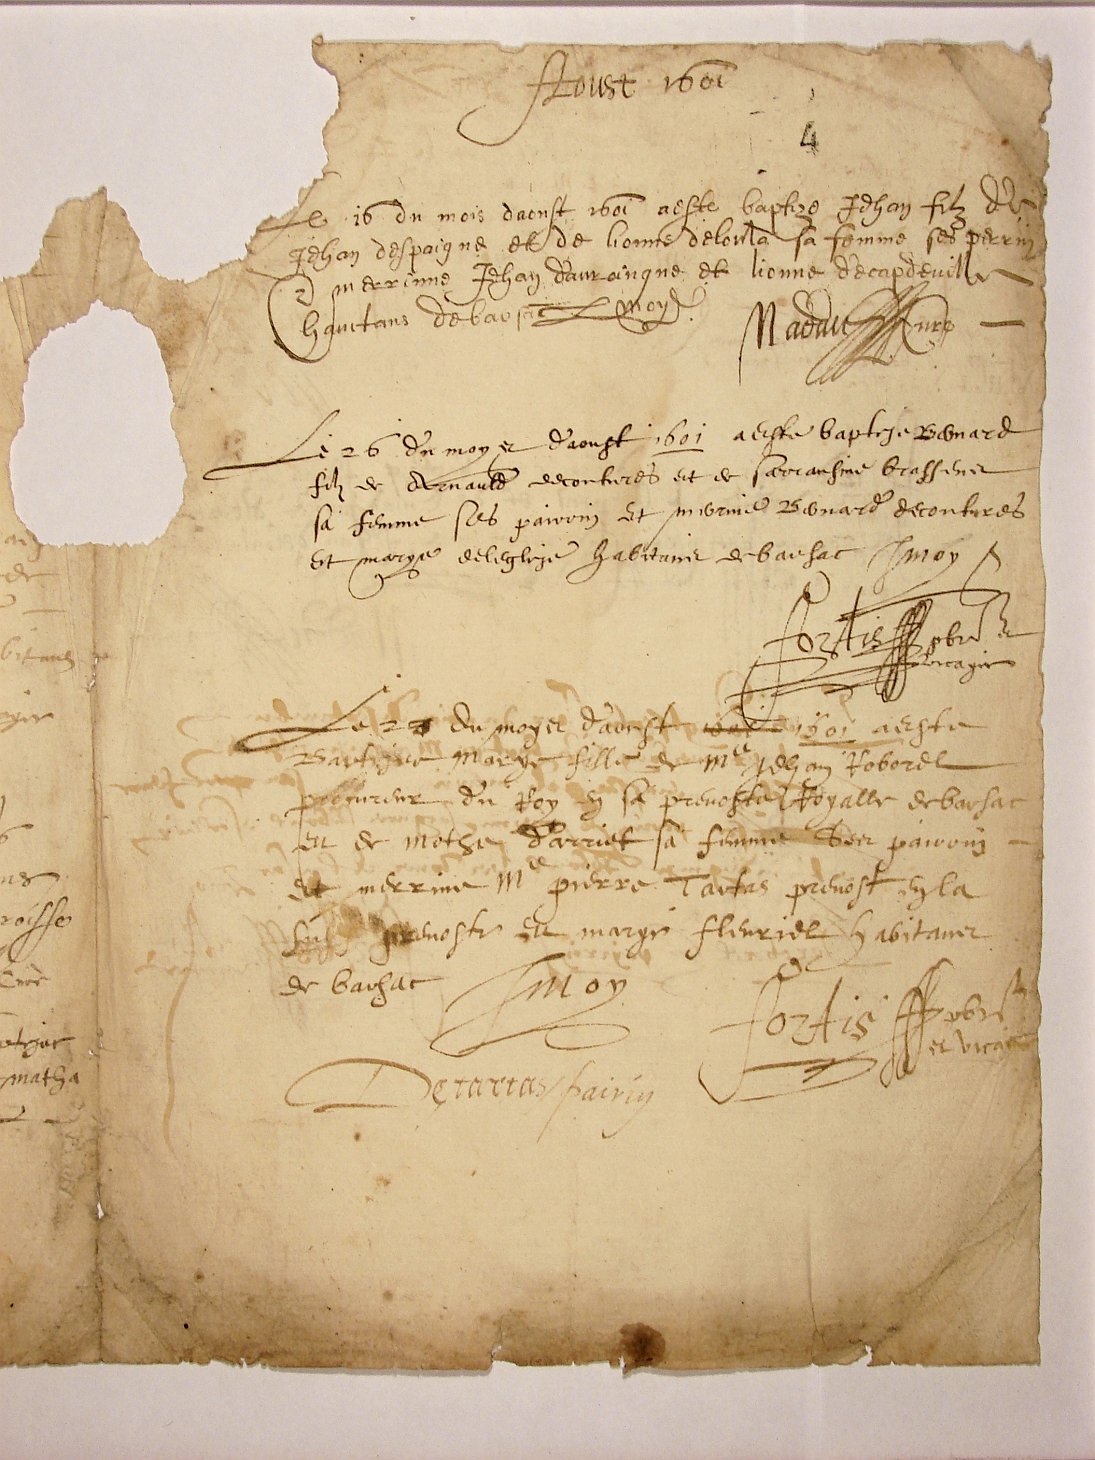 Aoust 1601
4
Le 16 du mois daoust 1601 aeste baptize Jehan filz de
Jehan despaigne et de lionne delorla sa femme ses perrin
merrinne Jehan dauraingne et lionne decapdeuille
hauctans de barsac moy
Nadau Cure
Le 26 du moys d'aoust 1601 aeste baptize Bernard
filz de Arnauld decoutures et de sarransine brassens
sa femme ses pairoin et merine Bernard decoutures
et marye deleglize habitans de barsac moy
fortis pbre et
vicayre
Le 2 du moys d'aoust 1601 aeste
Baptizee Marye fille de Me Jehan Roborel
procureur du Roy en sa preuoste Royalle de barsac
et de mothe darriet sa femme Ses pairoin
et merrine Me pierre Tartas preuost en la
preuoste et marye fleuriel habitans
de barsac moy
fortis pbre
et vicaire
De tartas pairin
bitans
roisse
Cure
matha